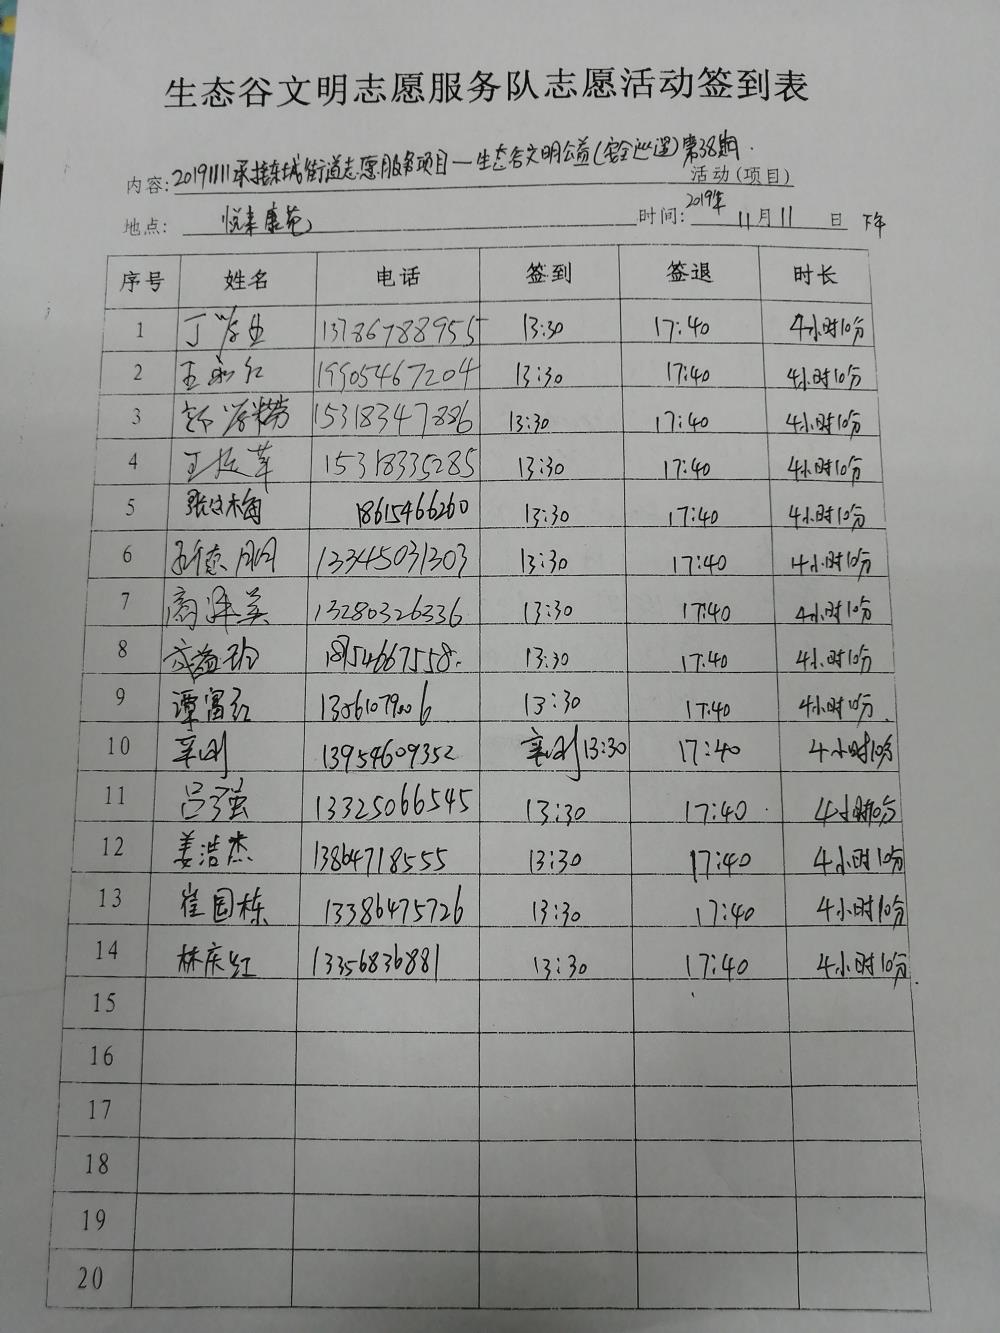 生态谷文明志愿服务队志愿活动签到表
内容:20191111承接东城街道志愿服务项目—生态谷文明公益(安全巡逻)第38期 活动(项目)
地点: 悦来康苑 时间:2019年11月11日 下午
序号 姓名 电话 签到 签退 时长
1 13786788955 13:30 17:40 4小时10分
2 王永红 19905467204 13:30 17:40 4小时10分
3 15318347886 13:30 17:40 4小时10分
4 15318335285 13:30 17:40 4小时10分
5 18615466260 13:30 17:40 4小时10分
6 13345031303 13:30 17:40 4小时10分
7 13280326336 13:30 17:40 4小时10分
8 18154667558. 13:30 17:40 4小时10分
9 谭富红 13:30 17:40 4小时10分.
10 辛刚 13954609352 辛刚 13:30 17:40 4小时10分
11 吕强 13325066545 13:30 17:40 4小时10分
12 姜浩杰 13864718555 13:30 17:40 4小时10分
13 崔国栋 13386475726 13:30 17:40 4小时10分
14 林庆红 13356836881 13:30 17:40 4小时10分
15
16
17
18
19
20